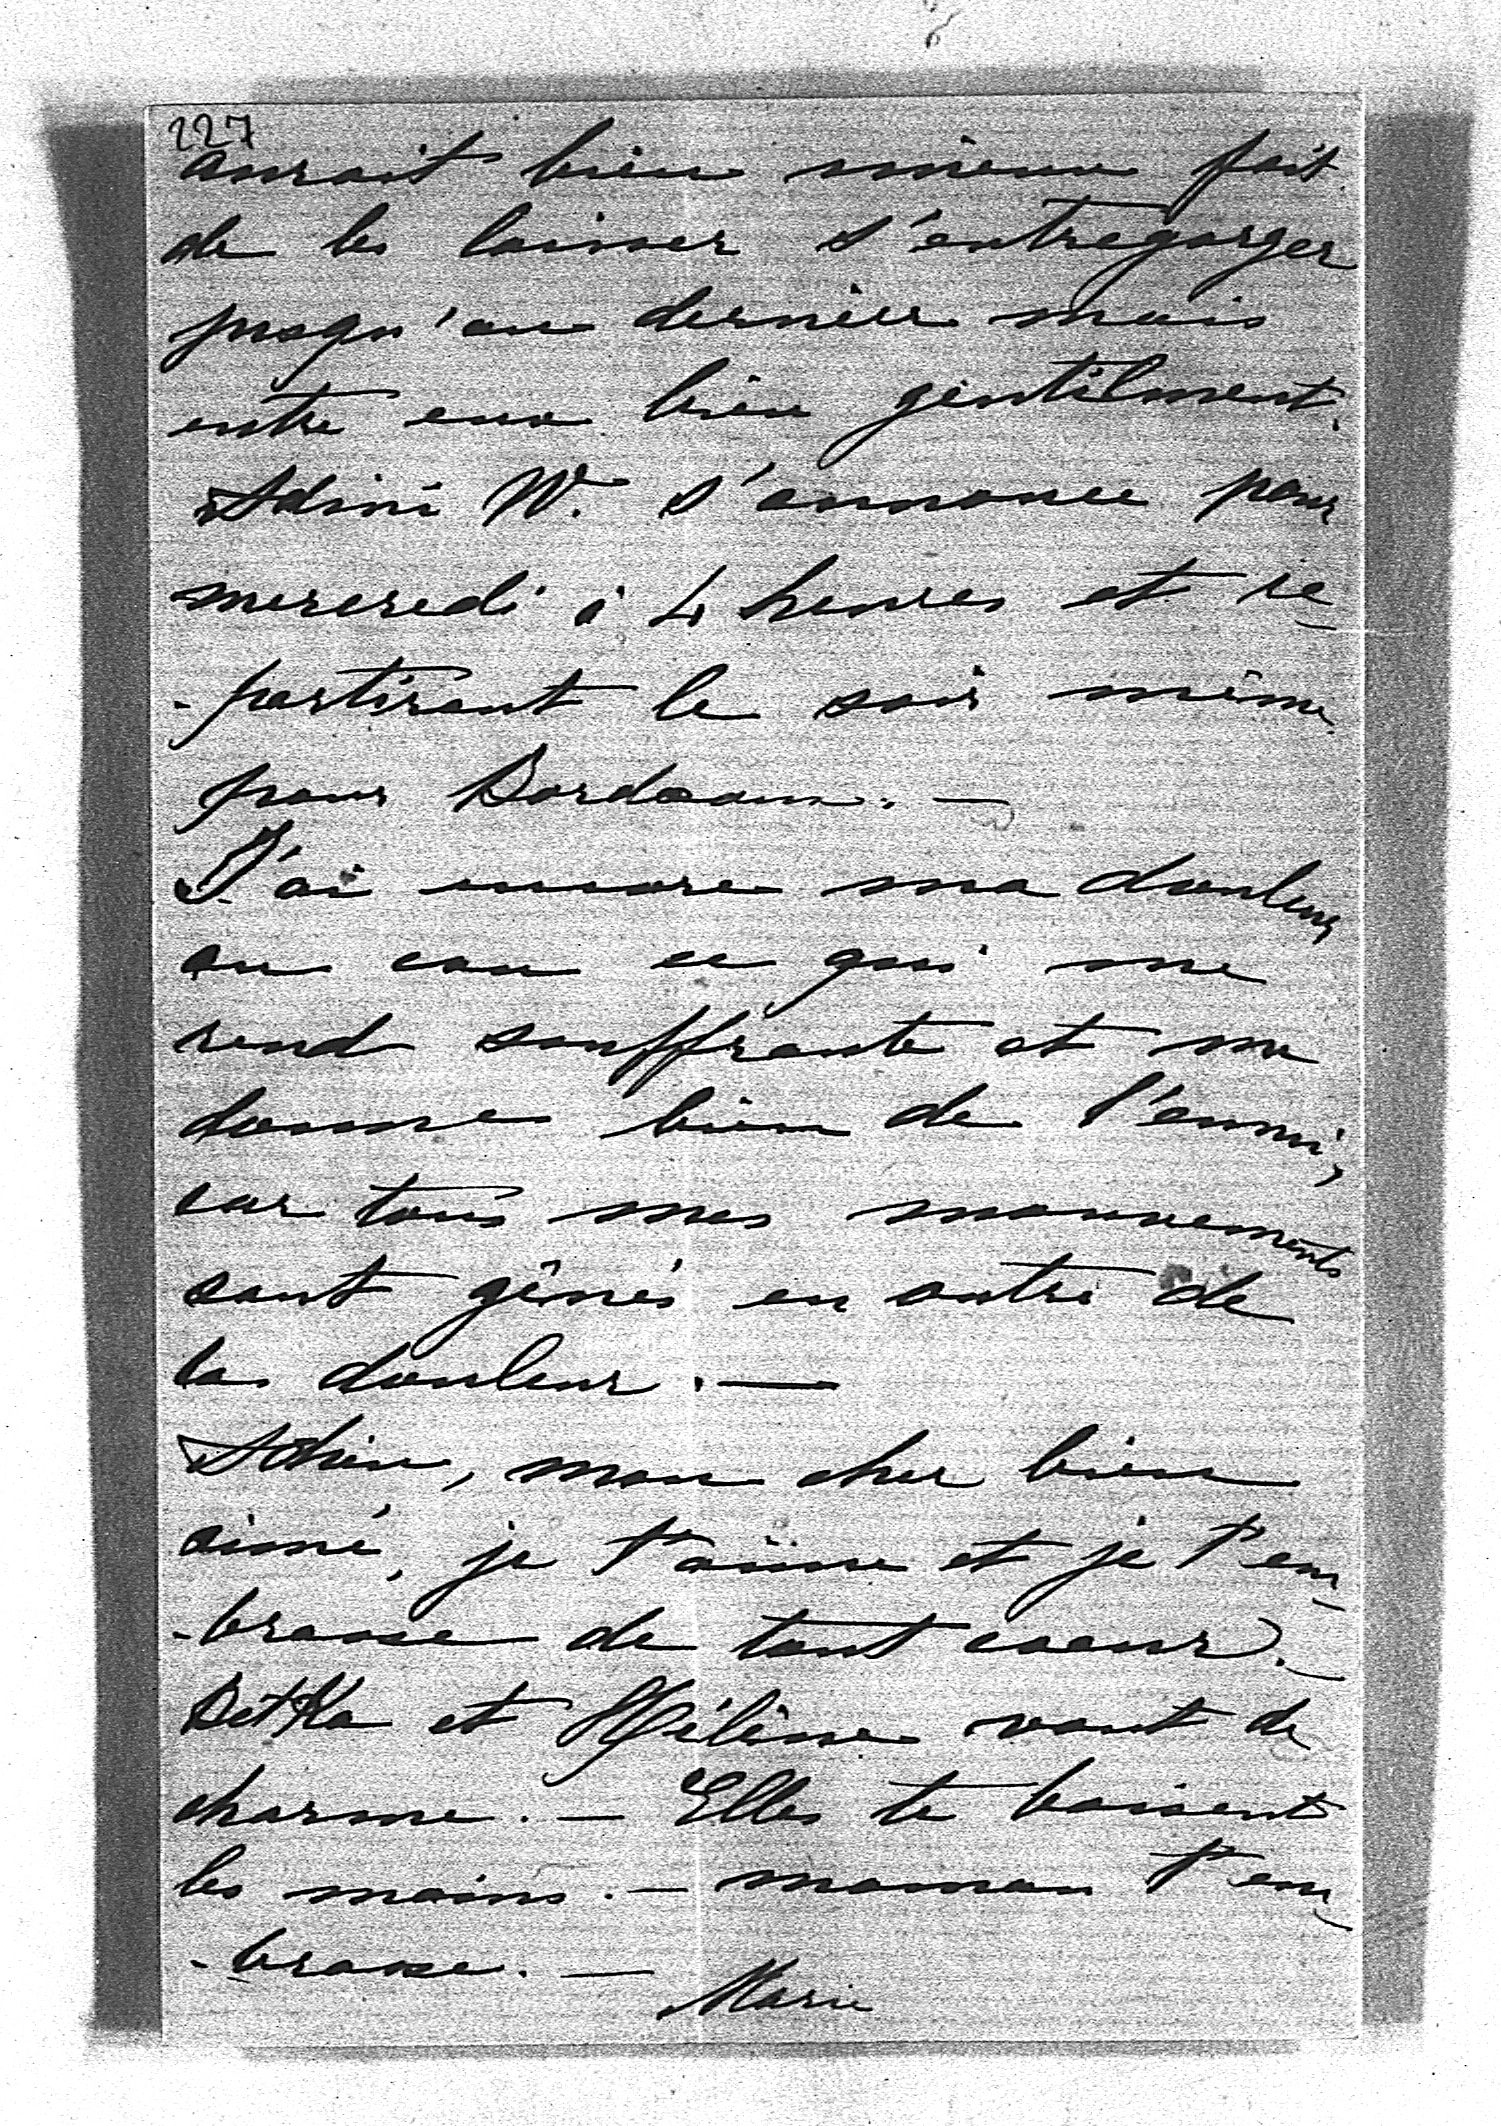 227
aurait bien mieux fait
de les laisser s'entregorger
jusqu'au dernier mais
entre eux bien gentilment.
Adini W. s'annonce pour
mercredi à 4 heures et re-
-partiront le soir même
pour Bordeaux. —
J'ai encore ma douleur
au cou ce qui me
rend souffrante et me
donne bien de l'ennui,
car tous mes mouvements
sont gênés en outre de
la douleur. —
Adieu, mon cher bien
aimé, je t'aime et je t'em-
-brasse de tout coeur. —
Betka et Hélène vont de
charme. — Elles te baisent
les mains. — maman t'em-
-brasse. —
Marie